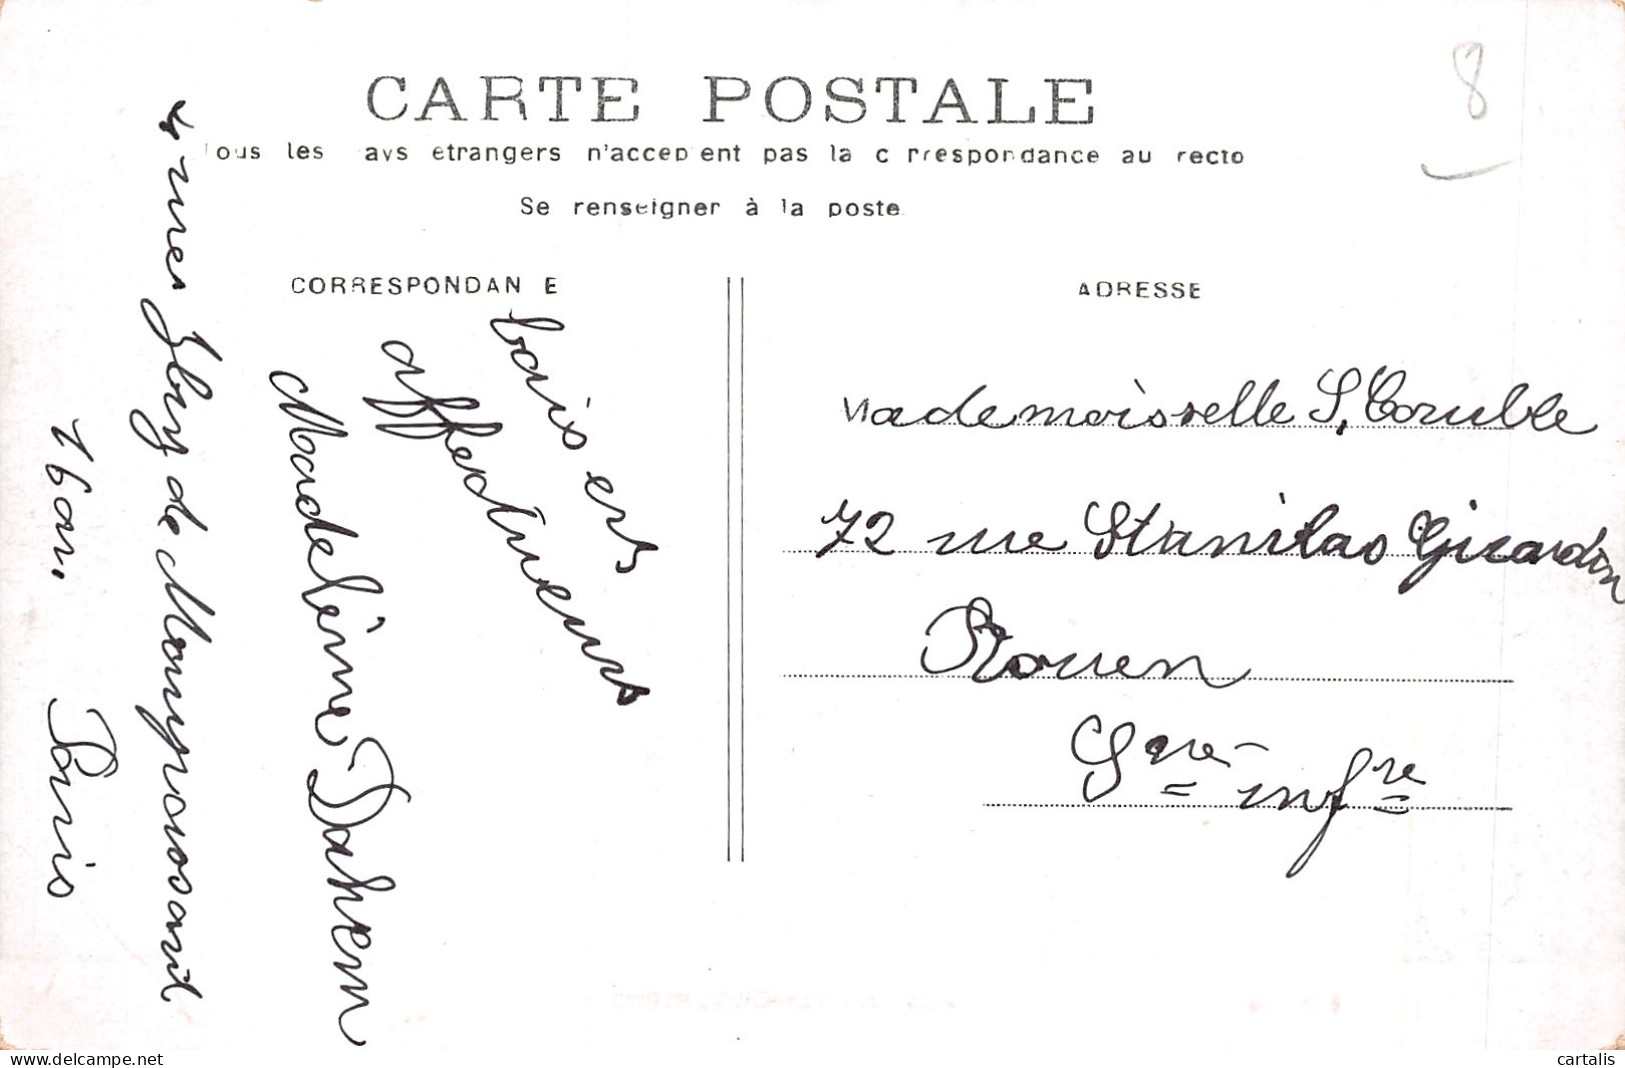 CARTE POSTALE
ous les ays etrangers n'accep ent pas la c rrespondance au recto
Se renseigner à la poste
8
CORRESPONDAN E
baisers
affectueux
Madeleine Dahem
rue
de
16 arr.
Paris
ADRESSE
Mademoiselle S. Couble
72 rue Stanislas Girardin
Rouen
Sne infre
www.delcampe.net
cartalis